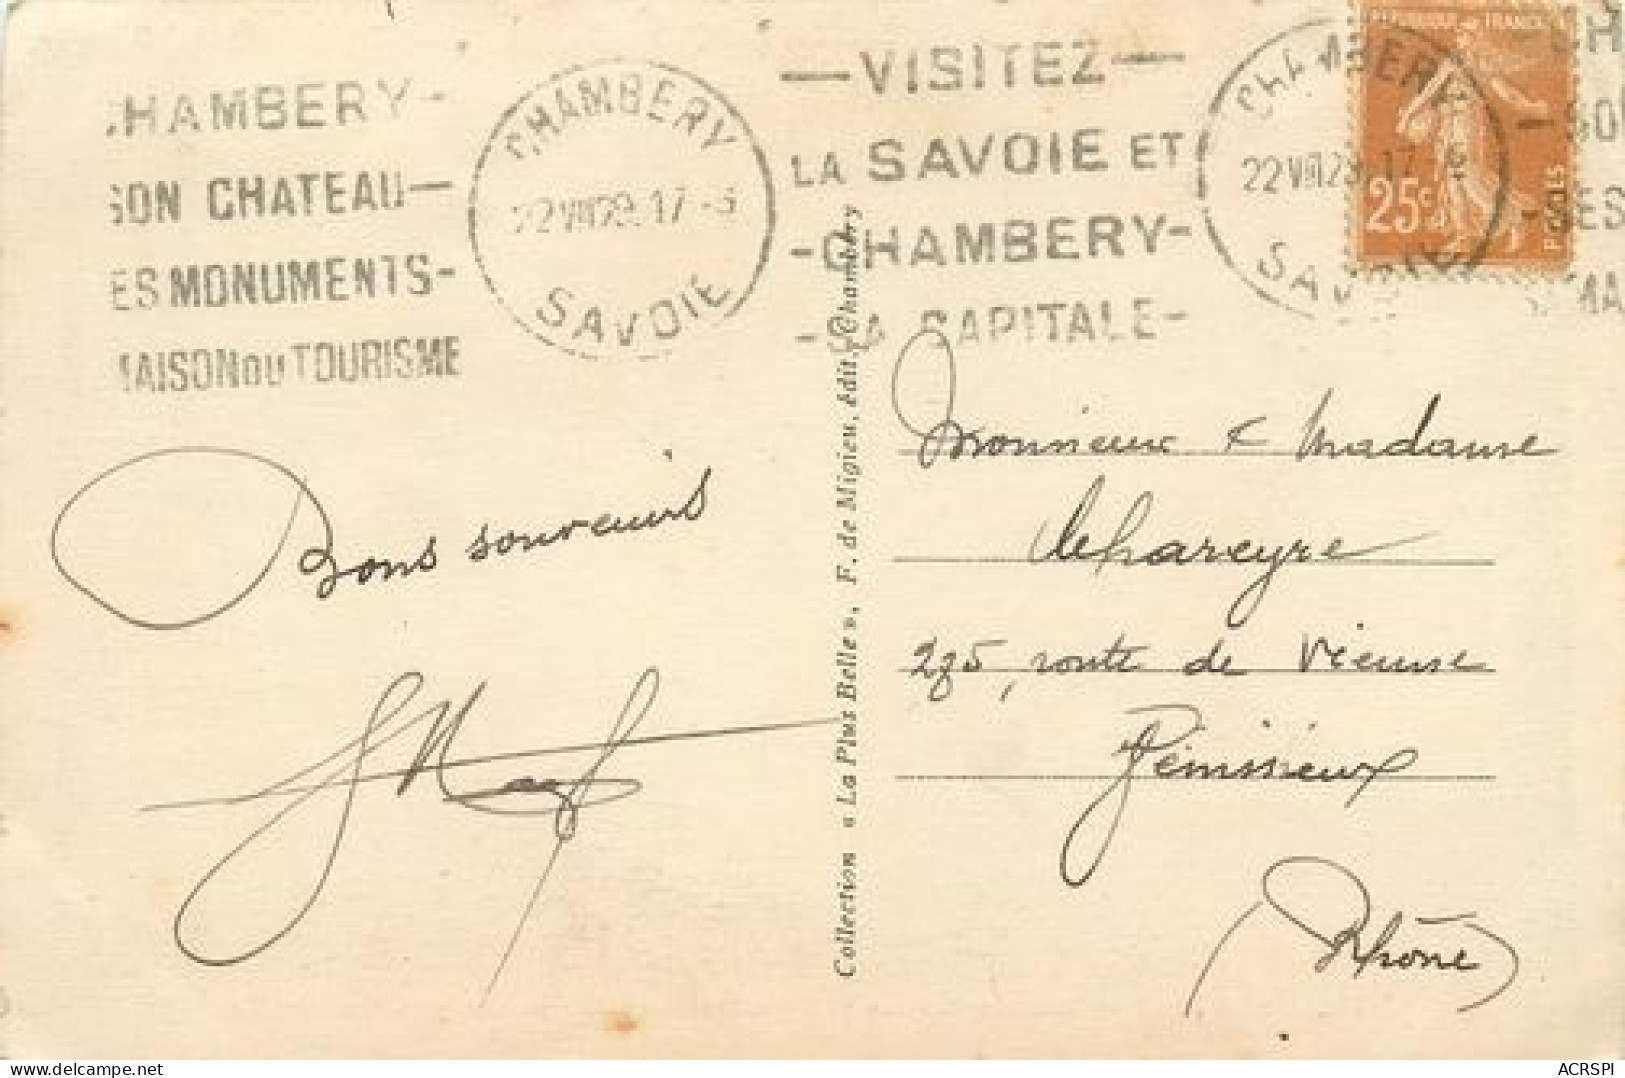 CHAMBERY-
SON CHATEAU-
SES MONUMENTS-
MAISON DU TOURISME
CHAMBERY
22 VIII 28. 17-
SAVOIE
-VISITEZ-
LA SAVOIE ET
-CHAMBERY-
-SA CAPITALE-
CHAMBERY
22 VIII 28 17
SAVOIE
REPUBLIQUE DE FRANCE
25c
POSTES
Bons souvenirs
Collection « La Plus Belle », F. de Migieu, édit., Chambéry
Monsieur & Madame
Dehareyre
275, route de Vienne
Vénissieux
(Rhône)
ACRSPI